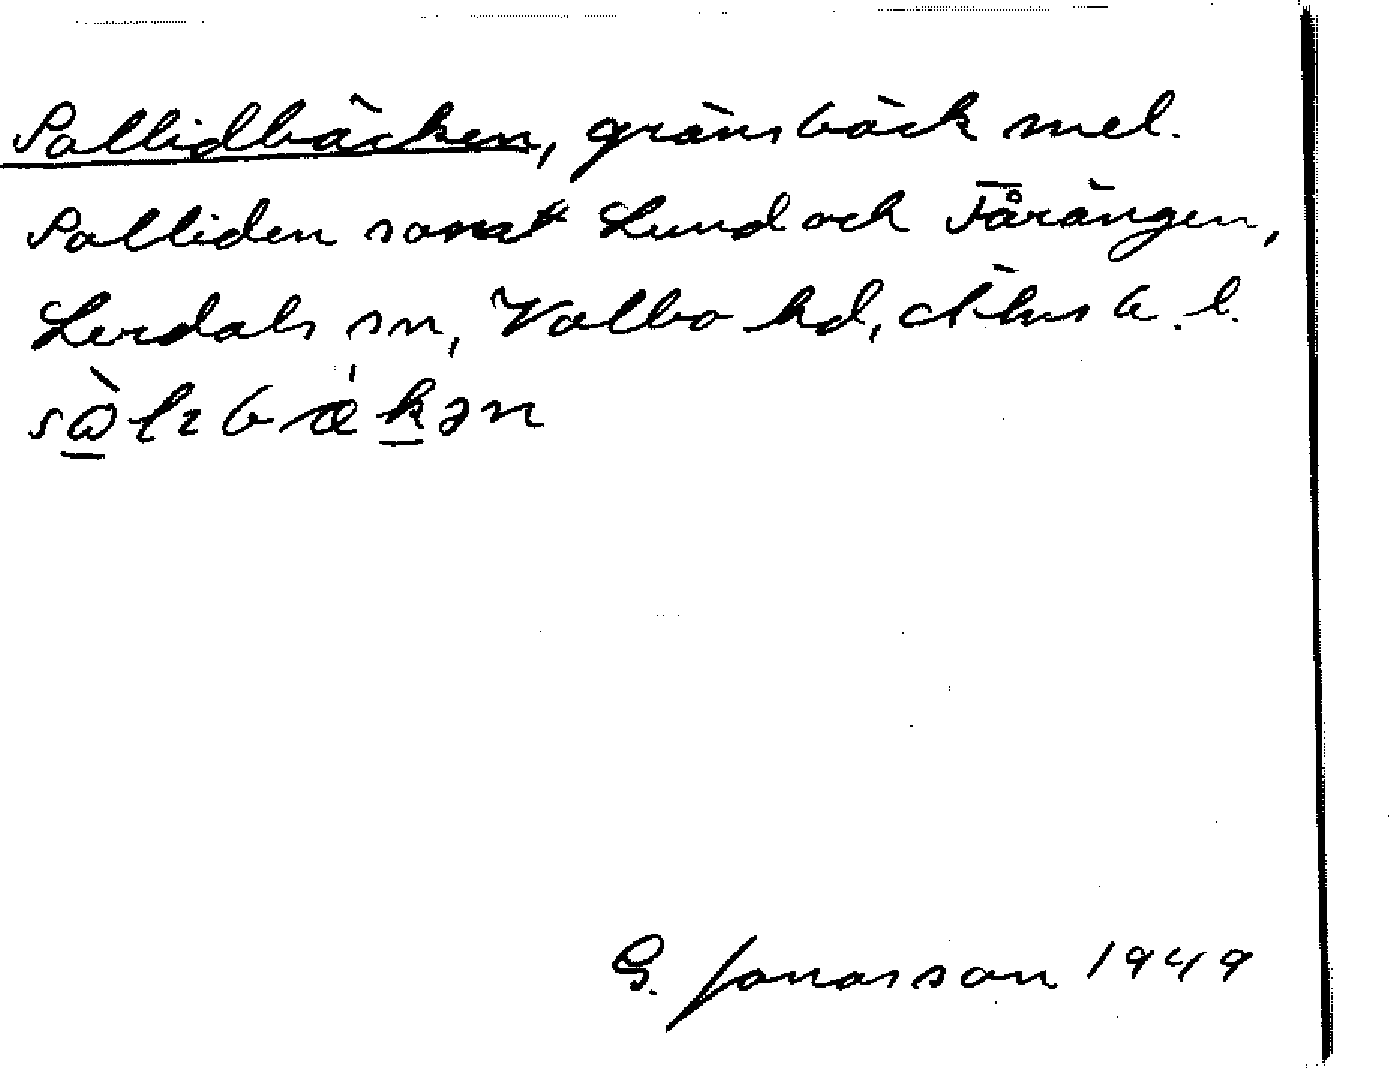 Sollidbäcken, gränsbäck mel.
Solliden samt Lund och Fårängen,
Lerdals sn, Valbo hd, Älvsb. l.
sὼ̲lıbæ'k̲ən
G. Jonasson 1949